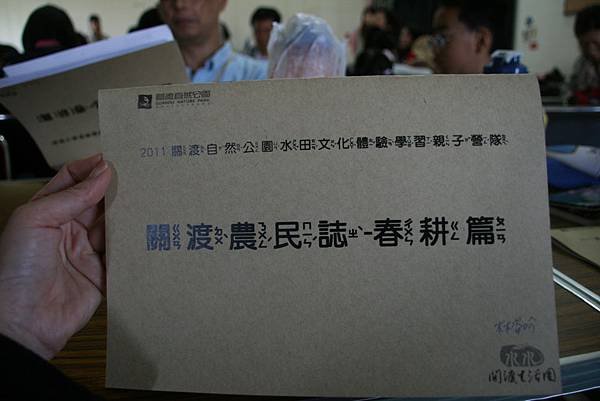 關渡自然公園
GUANDU NATURE PARK
2011 關渡自然公園水田文化體驗學習親子營隊
關渡農民誌-春耕篇
水水
關渡生活圈